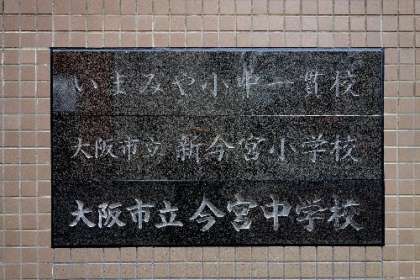 いまみや小中一貫校
大阪市立 新今宮小学校
大阪市立 今宮中学校